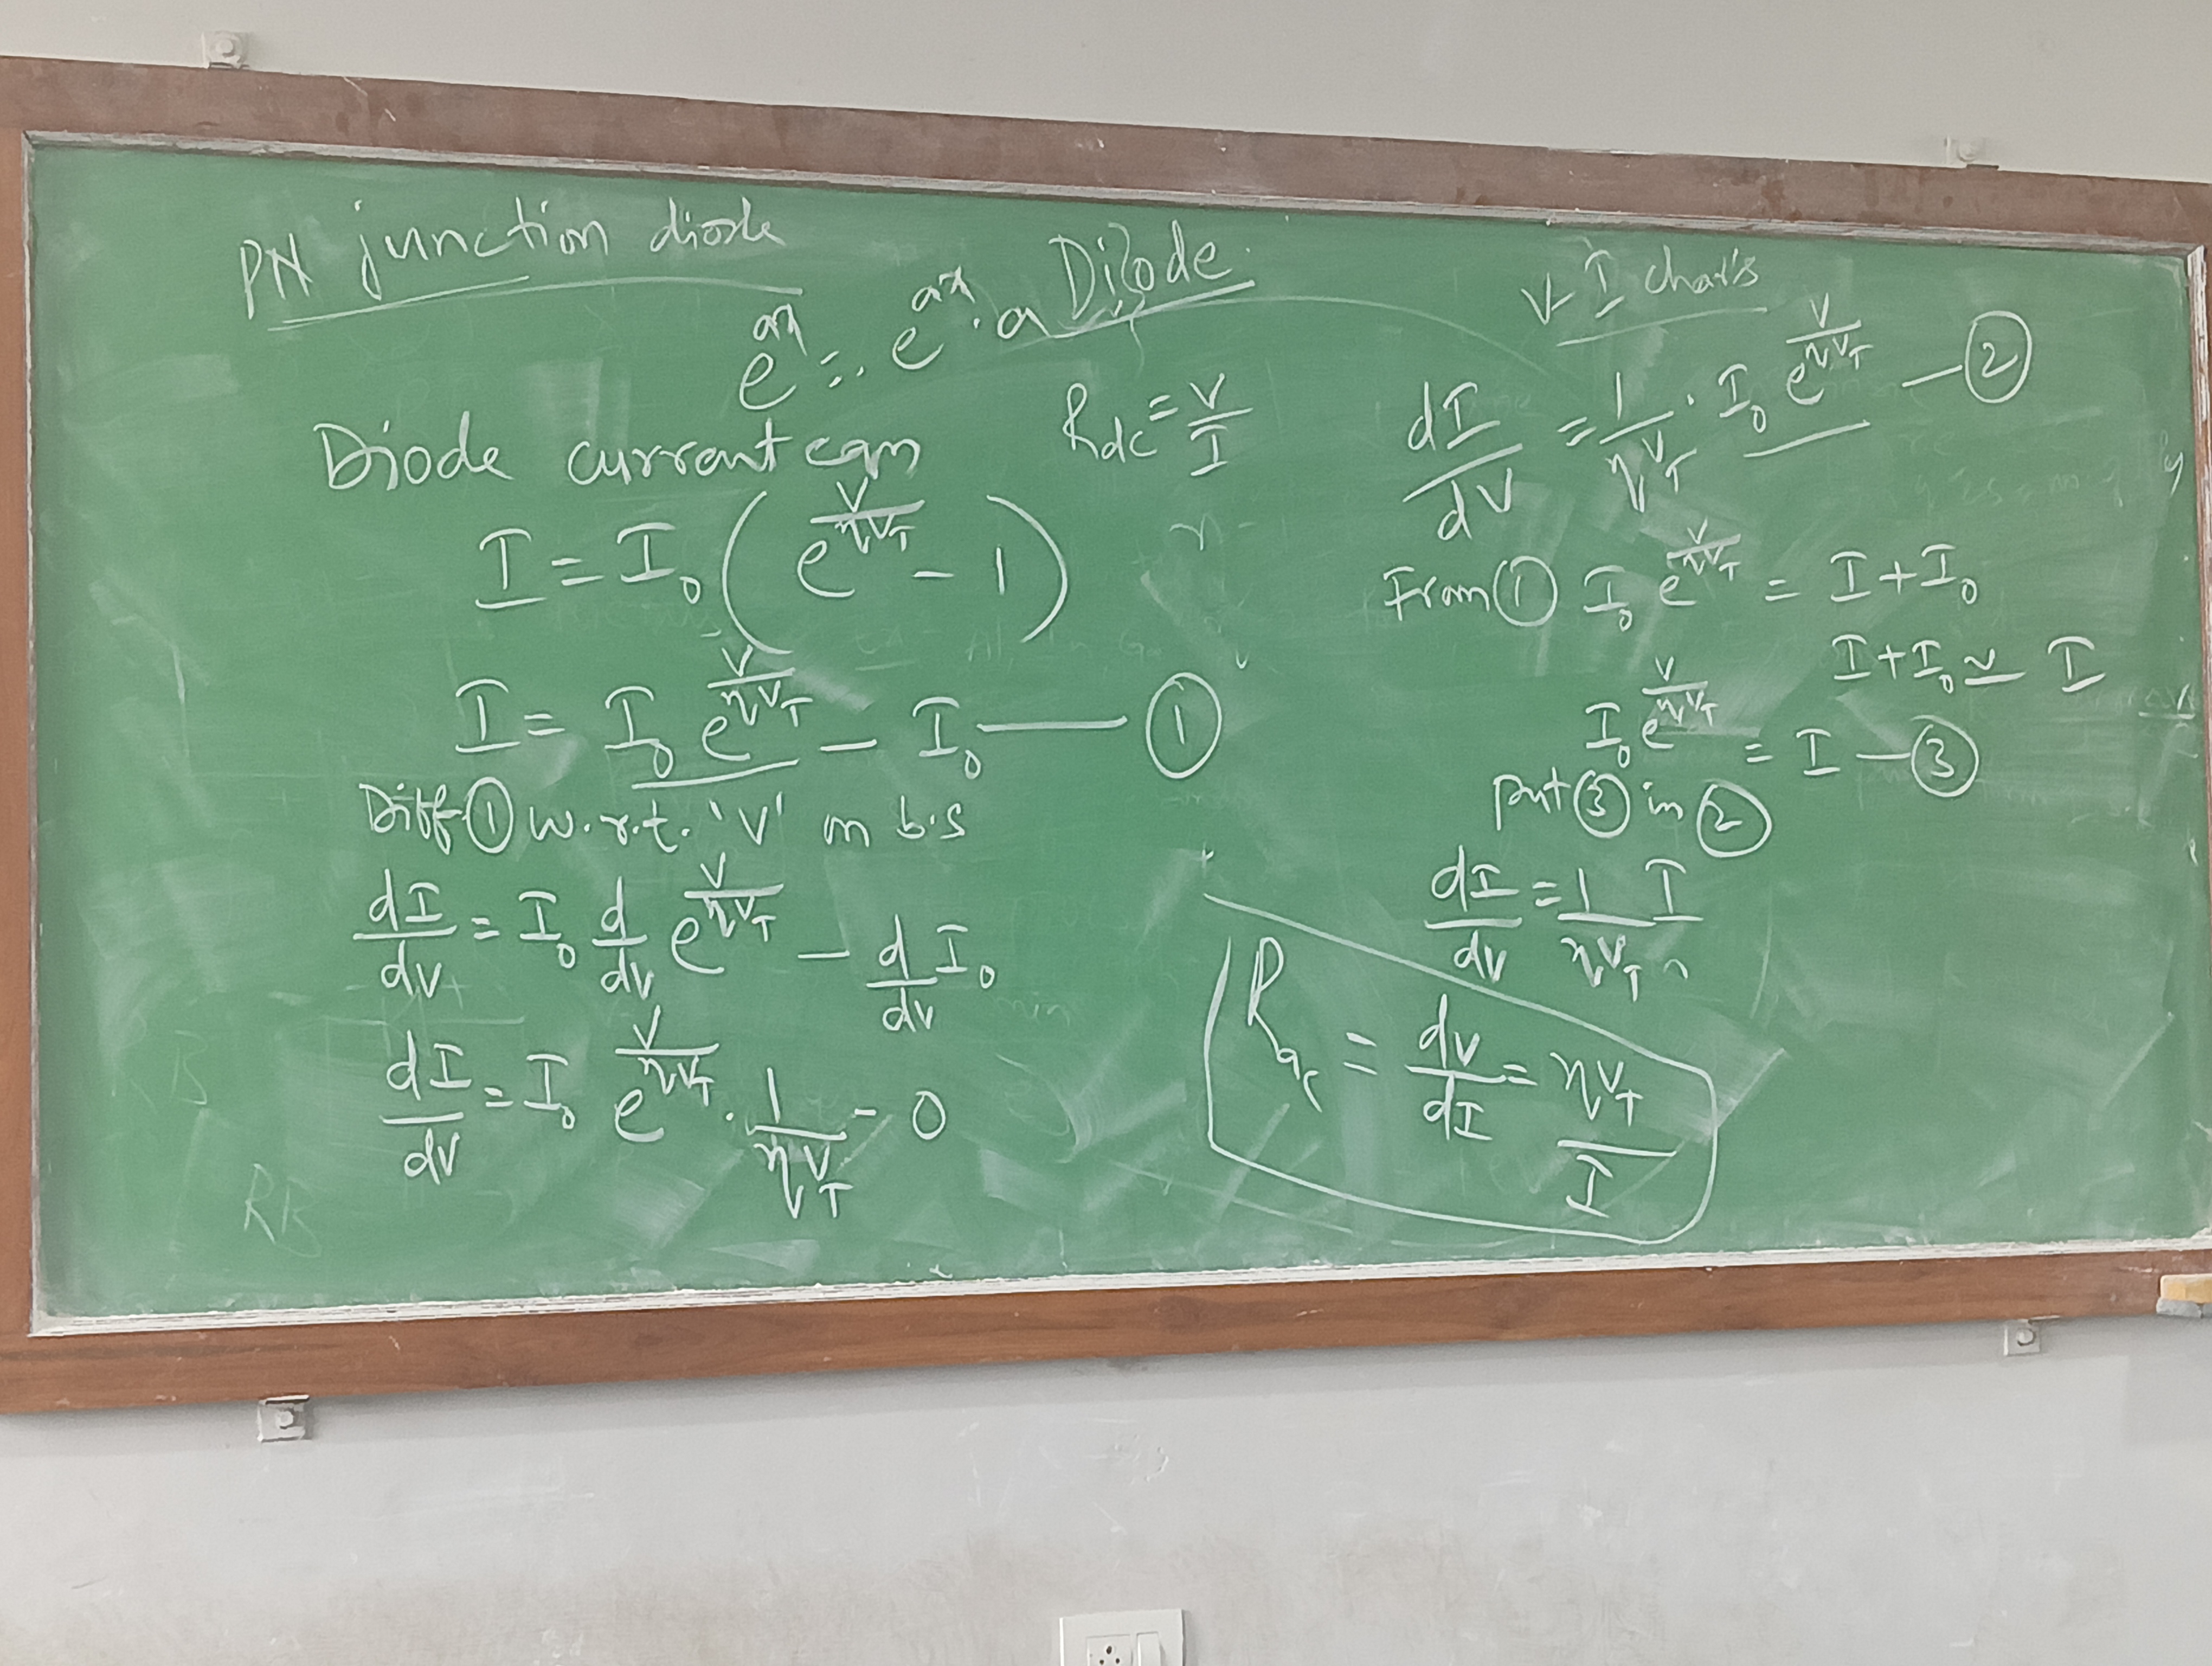 PN junction diode
Diode
V-I char's
e^ax = e^ax . a
Diode current eqn
R_dc = V/I
I = I₀ (e^(V/ηV_T) - 1)
I = I₀ e^(V/ηV_T) - I₀ — ①
Diff ① w.r.t. 'V' on b.s
dI/dV = I₀ d/dV e^(V/ηV_T) - d/dV I₀
dI/dV = I₀ e^(V/ηV_T) . 1/ηV_T - 0
RB
dI/dV = 1/ηV_T . I₀ e^(V/ηV_T) — ②
From ① I₀ e^(V/ηV_T) = I + I₀
I + I₀ ≃ I
I₀ e^(V/ηV_T) = I — ③
put ③ in ②
dI/dV = 1/ηV_T I
R_ac = dV/dI = ηV_T/I